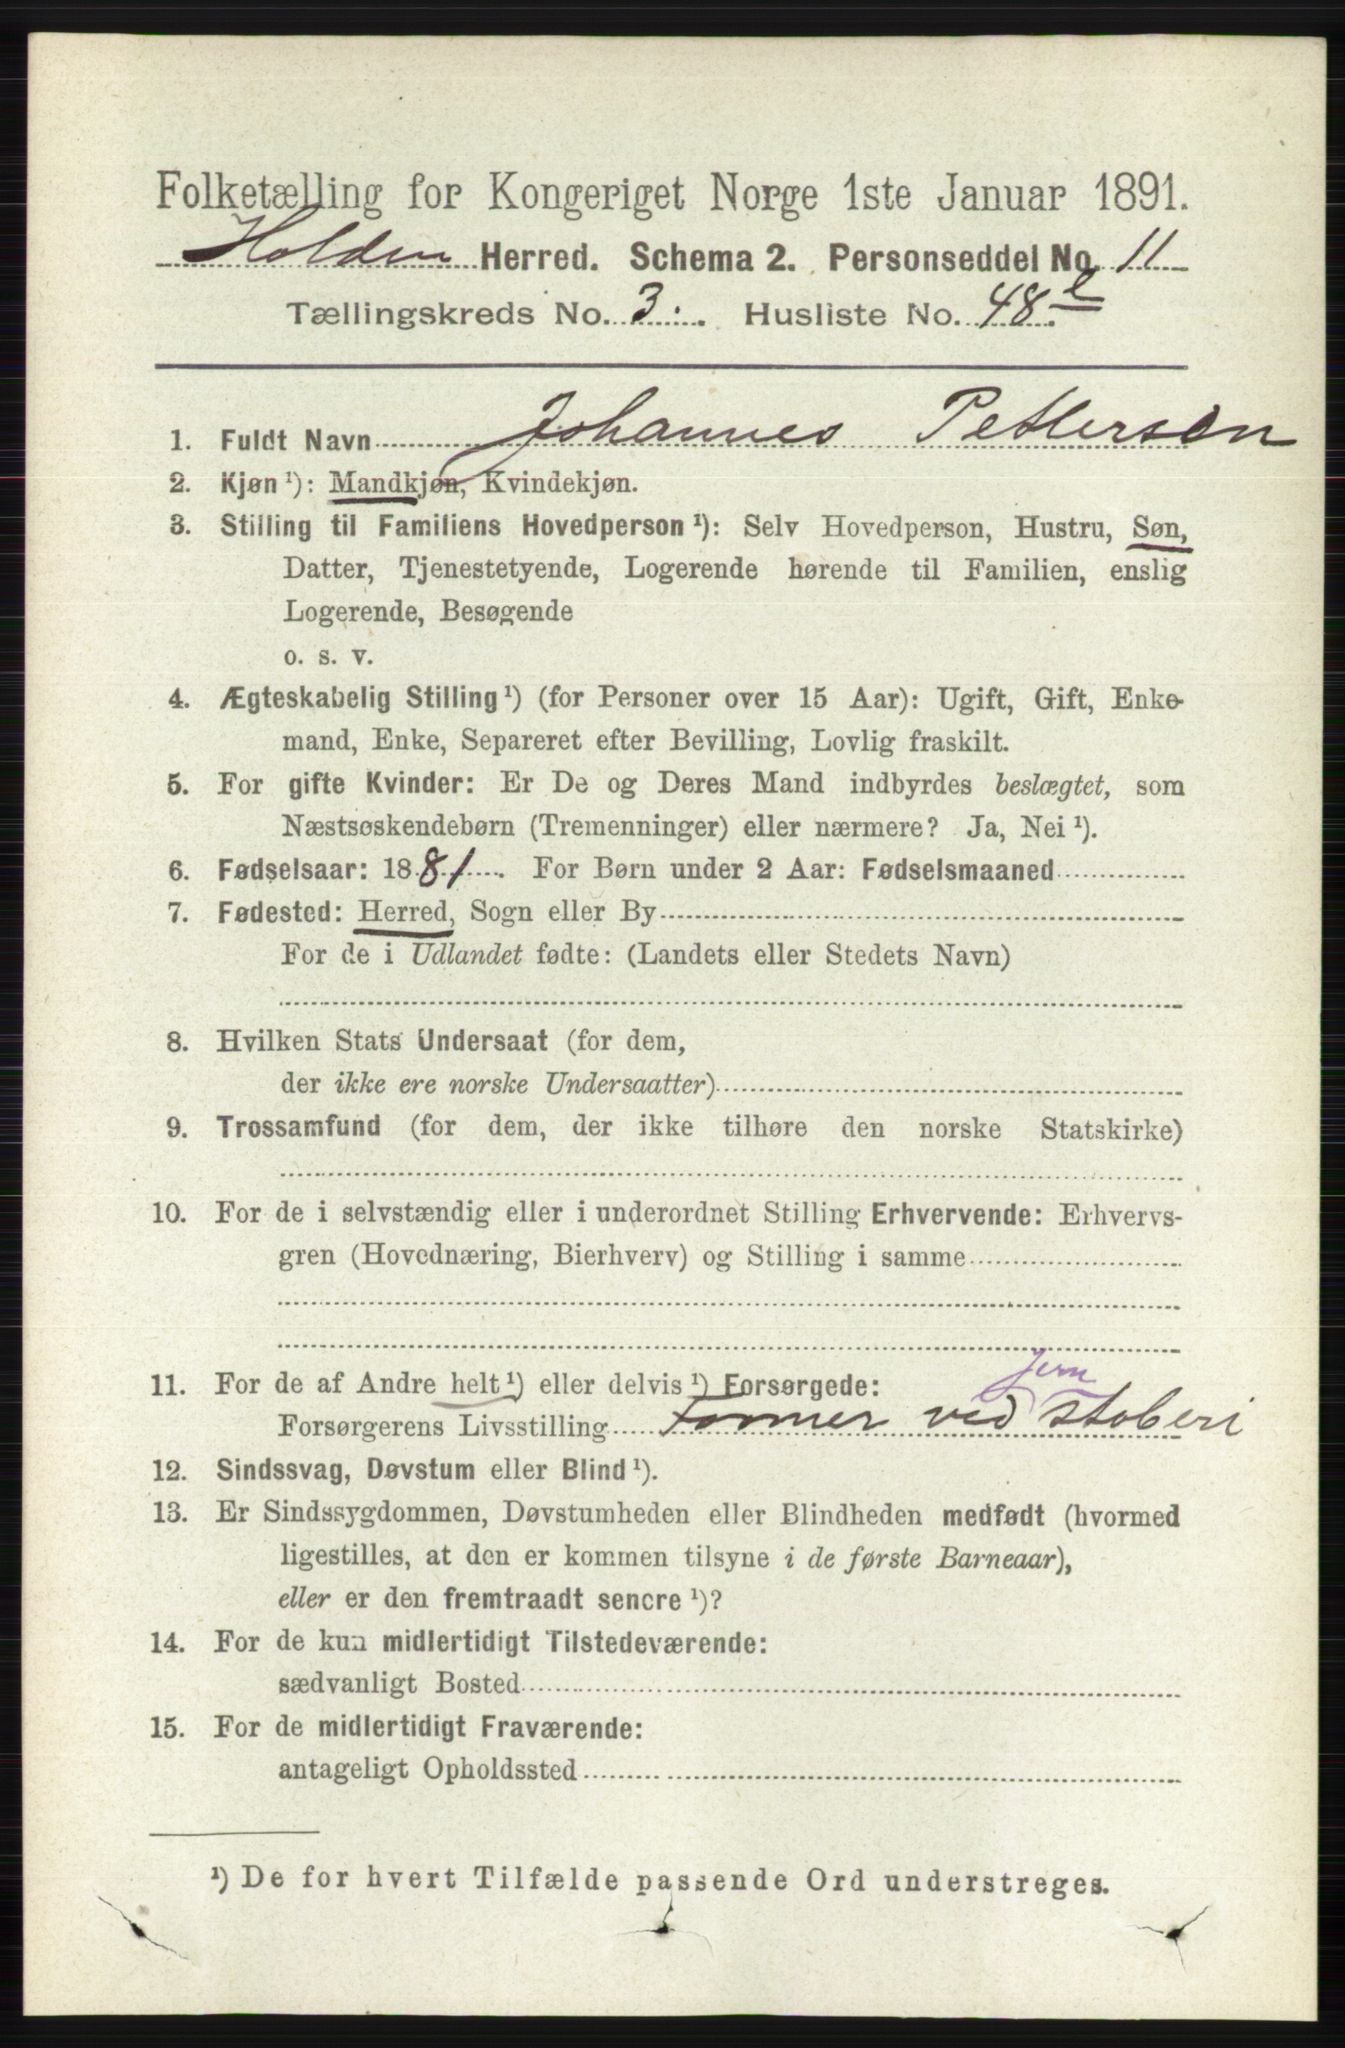 Folketælling for Kongeriget Norge 1ste Januar 1891.
Holden Herred. Schema 2. Personseddel No. 11
Tællingskreds No. 3. Husliste No. 48 l
1. Fuldt Navn Johannes Pettersen
2. Kjøn ¹): Mandkjøn, Kvindekjøn.
3. Stilling til Familiens Hovedperson ¹): Selv Hovedperson, Hustru, Søn,
Datter, Tjenestetyende, Logerende hørende til Familien, enslig
Logerende, Besøgende
o. s. v.
4. Ægteskabelig Stilling ¹) (for Personer over 15 Aar): Ugift, Gift, Enke-
mand, Enke, Separeret efter Bevilling, Lovlig fraskilt.
5. For gifte Kvinder: Er De og Deres Mand indbyrdes beslægtet, som
Næstsøskendebørn (Tremenninger) eller nærmere? Ja, Nei ¹).
6. Fødselsaar: 1881. For Børn under 2 Aar: Fødselsmaaned
7. Fødested: Herred, Sogn eller By
For de i Udlandet fødte: (Landets eller Stedets Navn)
8. Hvilken Stats Undersaat (for dem,
der ikke ere norske Undersaatter)
9. Trossamfund (for dem, der ikke tilhøre den norske Statskirke)
10. For de i selvstændig eller i underordnet Stilling Erhvervende: Erhvervs-
gren (Hovednæring, Bierhverv) og Stilling i samme
11. For de af Andre helt ¹) eller delvis ¹) Forsørgede:
Jern
Forsørgerens Livsstilling Former ved støberi
12. Sindssvag, Døvstum eller Blind ¹).
13. Er Sindssygdommen, Døvstumheden eller Blindheden medfødt (hvormed
ligestilles, at den er kommen tilsyne i de første Barneaar),
eller er den fremtraadt senere ¹)?
14. For de kun midlertidigt Tilstedeværende:
sædvanligt Bosted
15. For de midlertidigt Fraværende:
antageligt Opholdssted
¹) De for hvert Tilfælde passende Ord understreges.